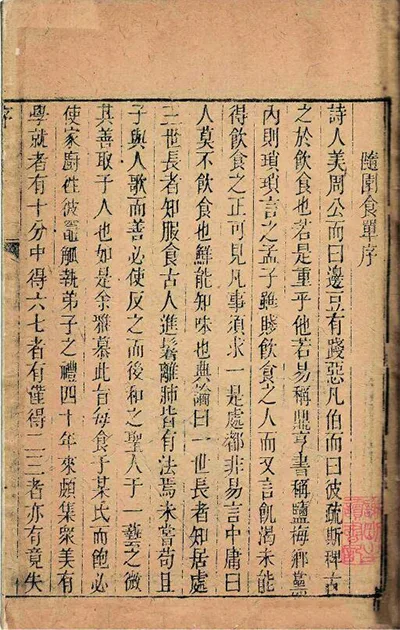 隨園食單序
詩人美周公而曰邊豆有踐惡凡伯而曰彼疏斯稗古
之於飲食也若是重乎他若易稱鼎亨書稱鹽梅鄉黨
內則瑣瑣言之孟子雖賤飲食之人而又言飢渴未能
得飲食之正可見凡事須求一是處都非易言中庸曰
人莫不飲食也鮮能知味也典論曰一世長者知居處
三世長者知服食古人進鬐離肺皆有法焉未嘗苟且
子與人歌而善必使反之而後和之聖人于一藝之微
其善取于人也如是余雅慕此旨每食于某氏而飽必
使家廚往彼竈觚執弟子之禮四十年來頗集眾美有
學就者有十分中得六七者有僅得二三者亦有竟失
序